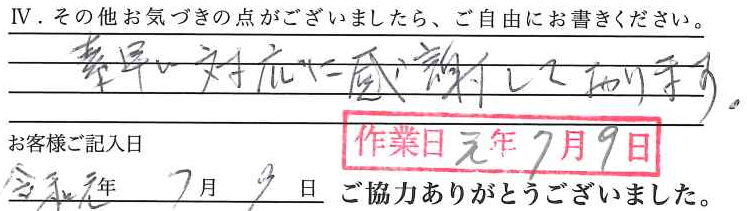 Ⅳ．その他お気づきの点がございましたら、ご自由にお書きください。
素早い対応に感謝しております。
お客様ご記入日
作業日 元年 7月 9日
令和元年 7月 9日 ご協力ありがとうございました。